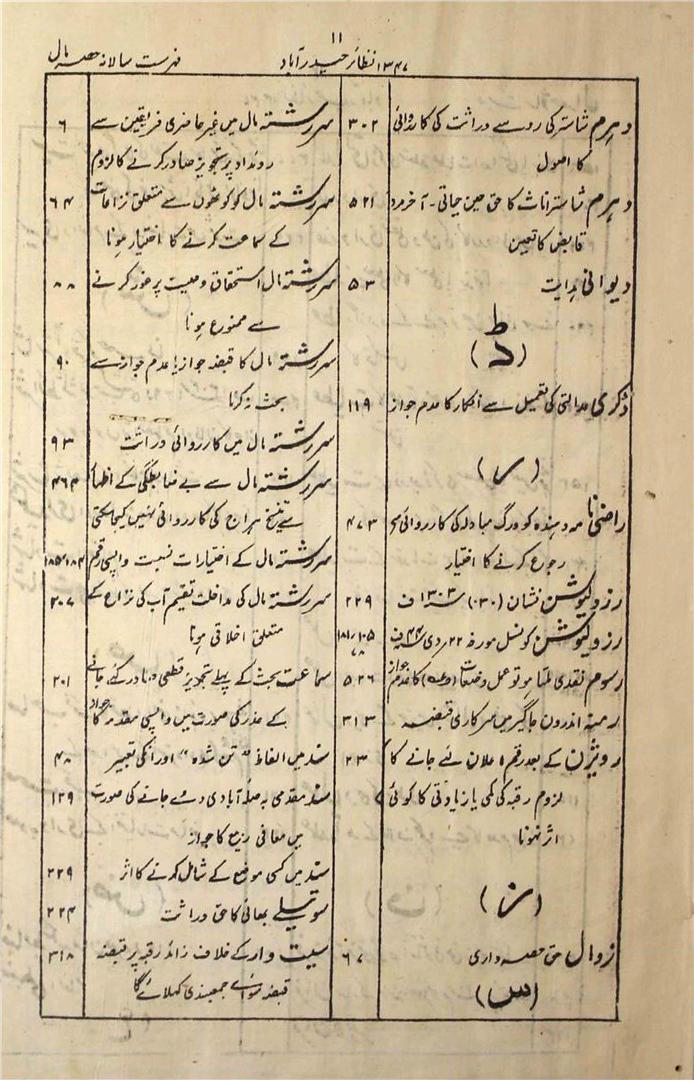 ۱۱
۱۳۴۷ نظائر حیدرآباد
فہرست سالانہ حصہ مال
دہرم شاستر کی رو سے وراثت کی کارروائی ۳۰۲
کا اصول
دہرم شاستر اناث کا حق حین حیاتی۔ آخر مرد ۵۲۱
قابض کا تعین
دیوانی ہدایت ۵۳
(ڈ)
ڈگری عدالتی کی تعمیل سے انکار کا عدم جواز ۱۱۹
(ر)
راضی نامہ دہندہ کو ورگ مبادلہ کی کارروائی میں ۴۷۳
رجوع کرنے کا اختیار
رزولیوشن نشان (۳۰) ۱۳۰۳ ف ۲۲۹
رزولیوشن کونسل مورخہ ۲۲ دی ف ۱۸۱/۱۰۵
۷۸
رسوم نقدی کا عدم جواز ۵۲۶
رمنہ اندرون جاگیر میں سرکاری قبضہ ۳۱۳
رویژن کے بعد رقم اعلان کئے جانے کا ۲۳
لزوم رقبہ کی کمی یا زیادتی کا کوئی
اثر نہونا
(ز)
زوال حق حصہ داری ۶۷
(س)
سررشتہ مال میں غیر حاضری فریقین سے ۶
روئداد پر تجویز صادر کرنے کا لزوم
سررشتہ مال کو کوٹھوں سے متعلق نزاعات ۶۴
کے سماعت کرنے کا اختیار ہونا
سررشتہ مال استحقاق وصیت پر غور کرنے ۸۸
سے ممنوع ہونا
سررشتہ مال کا قبضہ جواز یا عدم جواز سے ۹۰
بحث نہ کرنا
سررشتہ مال میں کارروائی وراثت ۹۳
سررشتہ مال سے بے ضابطگی کے اظہار ۴۶۴
سے تنسیخ ہراج کی کارروائی نہیں کیجاسکتی
سررشتہ مال کے اختیارات نسبت واپسی رقم ۱۸۵/۱۸۴
سررشتہ مال کی مداخلت تقسیم آب کی نزاع کے ۲۰۷
متعلق اخلاقی ہونا
سماعت بحث کے پہلے تجویز قطعی صادر کئے جانے ۲۰۱
کے عذر کی صورت میں واپسی مقدمہ کا جواز
سند میں الفاظ "تن شدہ" اور انکی تعبیر ۴۸
سند مقدمی بصلہ آبادی دئے جانے کی صورت ۱۲۹
میں معافی ربع کا جواز
سند میں کسی موضع کے شامل کرنے کا اثر ۲۲۹
سوتیلے بھائی کا حق وراثت ۲۲۴
سیت وار کے خلاف زائد رقبہ پر قبضہ ۳۱۸
قبضہ سوائے جمعبندی کہلائے گا